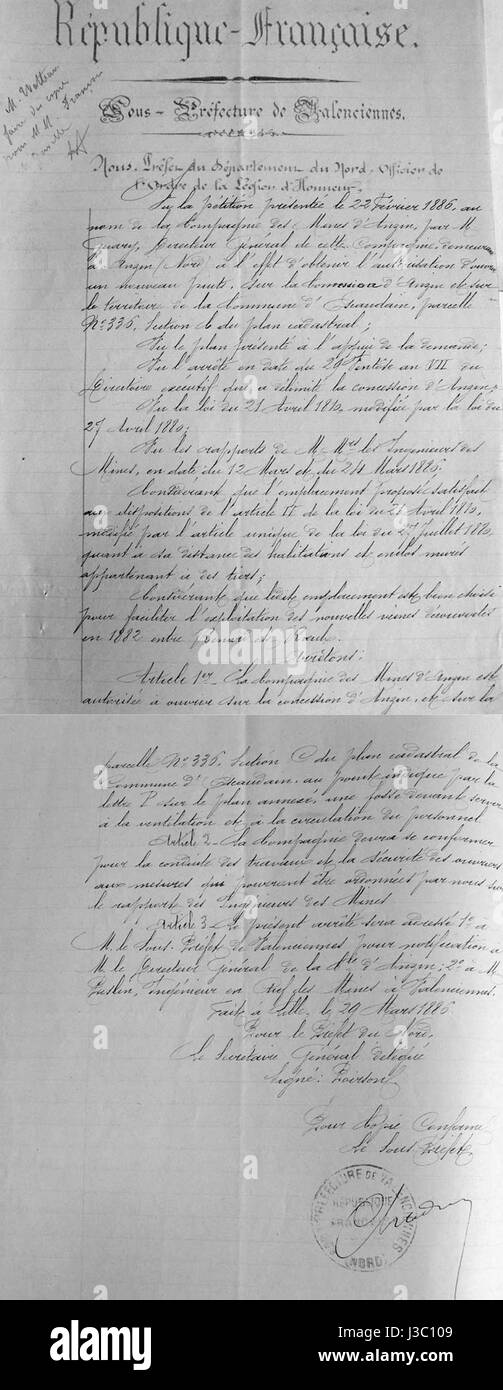 République-Française.
Sous-Préfecture de Valenciennes.
M. Watteau
faire du copie
pour M.M.
Nous, Préfet du Département du Nord, Officier de
l'Ordre de la Légion d'Honneur,
Vu la pétition présentée le 22 Février 1886, au
nom de la Compagnie des Mines d'Anzin, par M.
Guary, Directeur Général de cette Compagnie, demeurant
à Anzin (Nord) à l'effet d'obtenir l'autorisation d'ouvrir
un nouveau puits, sur la Concession d'Anzin et sur
le territoire de la Commune d'Escaudain, parcelle
No 336, Section C du plan cadastral;
Vu le plan présenté à l'appui de la demande;
Vu l'arrêté en date du 29 Ventôse an VII du
Directoire exécutif qui a délimité la concession d'Anzin;
Vu la loi du 21 Avril 1810, modifiée par la loi du
27 Avril 1880;
Vu les rapports de M.Mrs les Ingénieurs des
Mines, en date du 12 Mars et du 24 Mars 1886;
Considérant que l'emplacement proposé satisfait
aux dispositions de l'article 11 de la loi du 21 Avril 1810,
modifié par l'article unique de la loi du 27 Juillet 1880,
quant à sa distance des habitations et enclos murés
appartenant à des tiers;
Considérant que ledit emplacement est bien choisi
pour faciliter l'exploitation des nouvelles veines découvertes
en 1882 entre Denain et
Arrêtons:
Article 1er - La Compagnie des Mines d'Anzin est
autorisée à ouvrir sur la concession d'Anzin, et sur la
parcelle No 336, Section C du plan cadastral de la
Commune d'Escaudain, au point indiqué par la
lettre P sur le plan annexé, une fosse devant servir
à la ventilation et à la circulation du personnel
Article 2 - La Compagnie devra se conformer
pour la conduite des travaux et la sécurité des ouvriers
aux mesures qui pourront être ordonnées par nous sur
le rapport des Ingénieurs des Mines
Article 3 - Le présent arrêté sera adressé 1o à
M. le Sous-Préfet de Valenciennes pour notification à
M. le Directeur Général de la Cie d'Anzin; 2o à M.
Ingénieur en Chef des Mines à Valenciennes.
Fait à Lille, le 29 Mars 1886
Pour le Préfet du Nord,
Le Secrétaire Général délégué
Signé: Boirson
Pour Copie Conforme
Le Sous-Préfet
SOUS-PRÉFECTURE DE VALENCIENNES
RÉPUBLIQUE
FRANÇAISE
(NORD)
alamy
alamy stock photo
J3C109
www.alamy.com